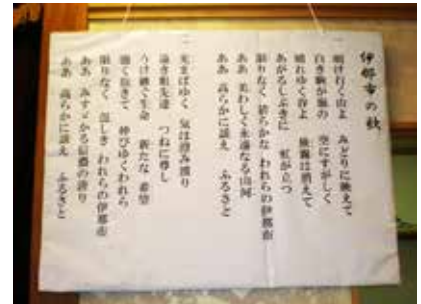 伊那市の歌
一 明け行く山よ みどりに映えて
白き駒が嶺の 空にすがしく
晴れゆく谷よ 狭霧は消えて
あがるしぶきに 虹が立つ
限りなく 清らかな われらの伊那市
ああ 美わしく永遠なる山河
ああ 高らかに謳え ふるさと
二 光まばゆく 気は澄み渡り
遠き祖先達 つねに尊し
うけ継ぐ生命 新たな 希望
強く抱きて 伸びゆくわれら
限りなく 逞しき われらの伊那市
ああ みすゞかる信濃の誇り
ああ 高らかに謳え ふるさと